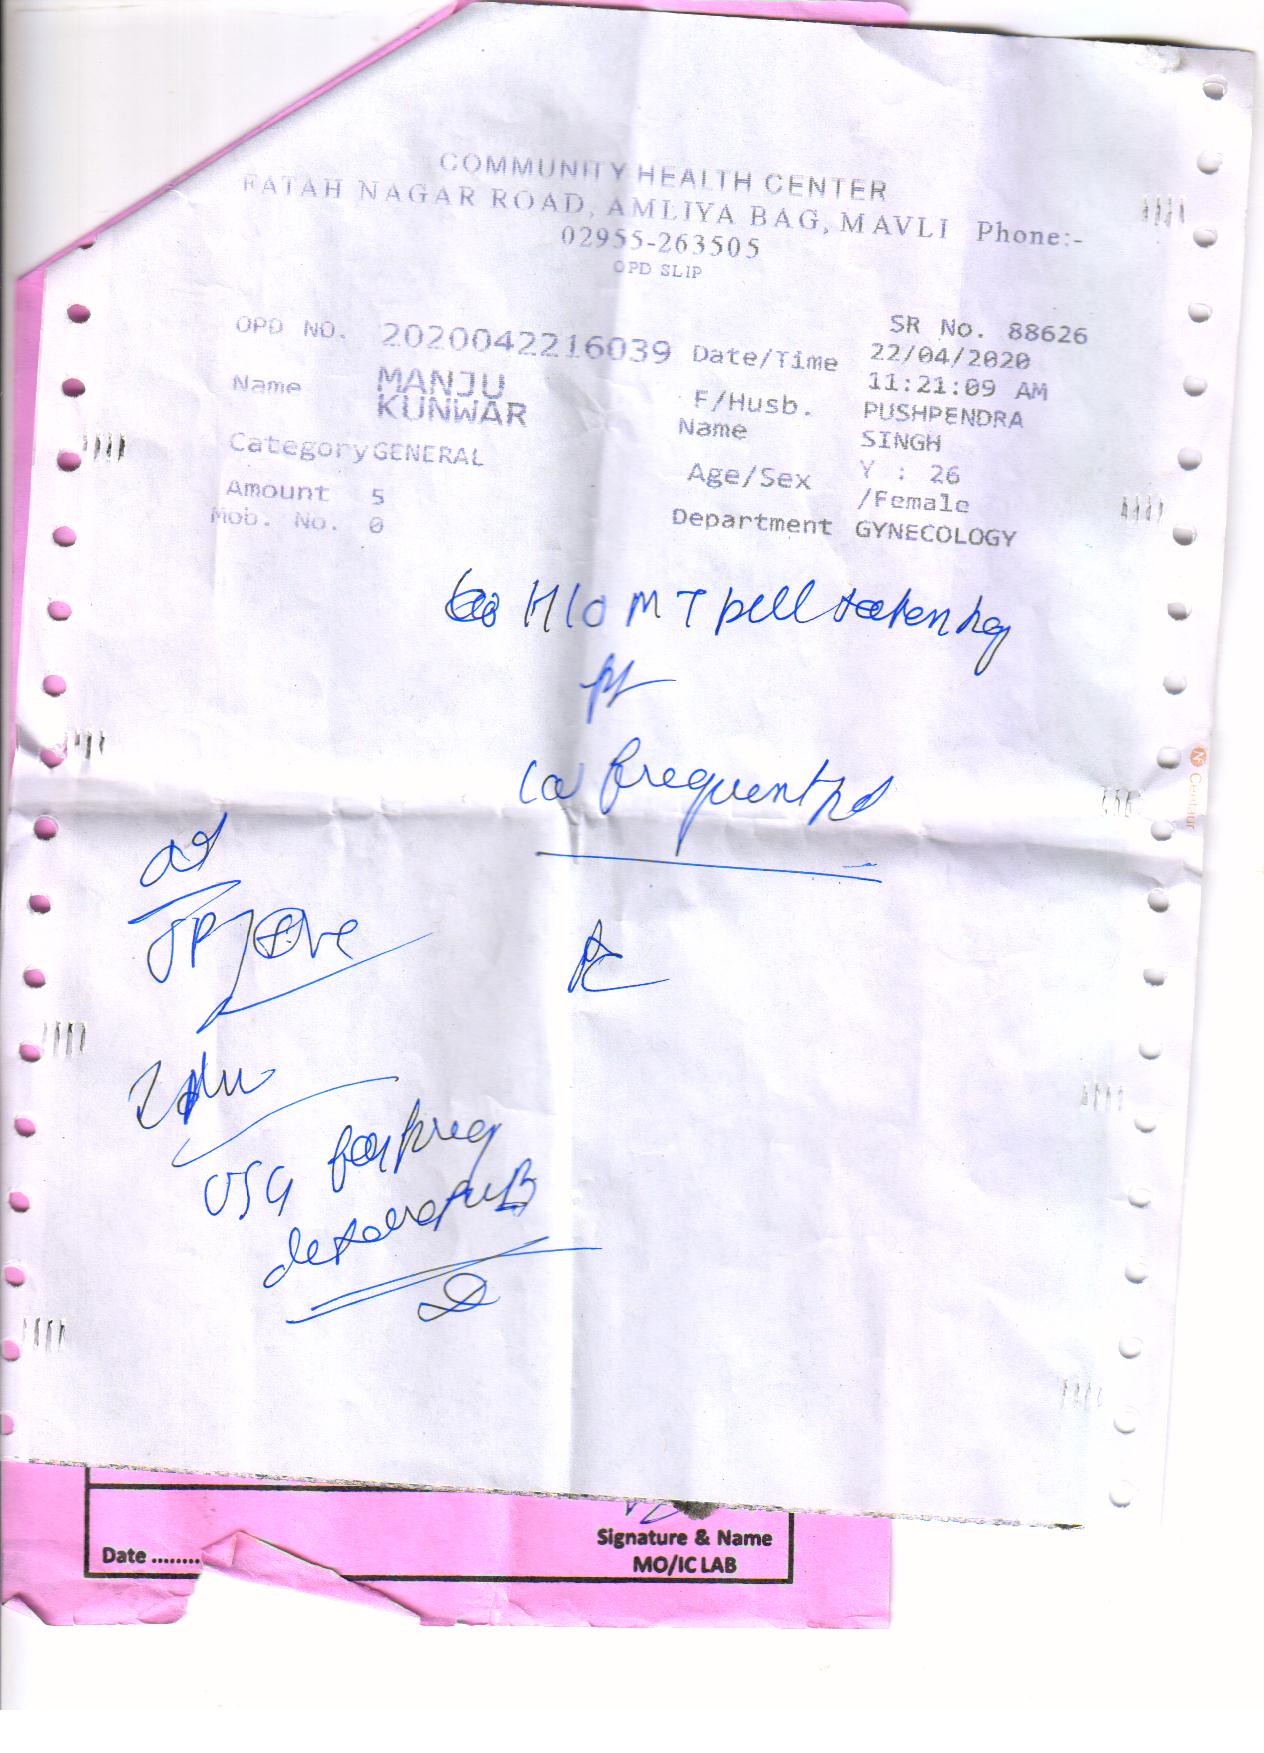 COMMUNITY HEALTH CENTER
FATAH NAGAR ROAD, AMLIYA BAG, MAVLI Phone:-
02955-263505
OPD SLIP
SR No. 88626
OPD NO. 2020042216039 Date/Time 22/04/2020
11:21:09 AM
Name MANJU KUNWAR
F/Husb. Name PUSHPENDRA SINGH
Category GENERAL
Age/Sex Y : 26 /Female
Amount 5
Mob. No. 0
Department GYNECOLOGY
H/o MT pill taken by
pt
frequent
USG for preg
Centaur
Date ........
Signature & Name
MO/IC LAB